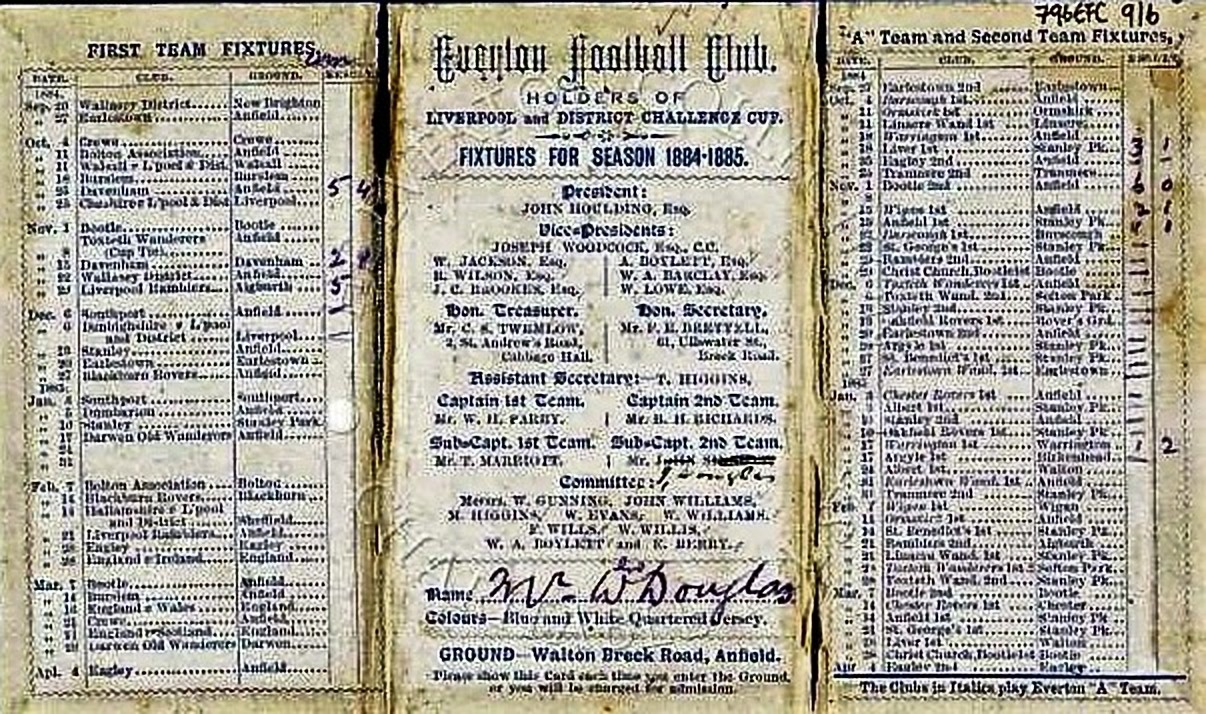 796EFC 9/6
FIRST TEAM FIXTURES.
DATE. CLUB. GROUND. RESULT.
1884.
Sep. 20 Wallasey District...... New Brighton
" 27 Earlestown...... Anfield......
Oct. 4 Crewe...... Crewe......
" 11 Bolton Association...... Anfield......
" 11 Walsall v L'pool & Dist. Walsall......
" 18 Burslem...... Burslem......
" 25 Davenham...... Anfield...... 5 4
" 25 Cheshire v L'pool & Dist. Liverpool......
Nov. 1 Bootle...... Bootle......
Toxteth Wanderers Anfield......
" 8 (Cup Tie)......
" 15 Davenham...... Davenham...... 2
" 22 Wallasey District...... Anfield......
" 29 Liverpool Ramblers...... Aigburth...... 5
Dec. 6 Southport...... Anfield......
" 6 Denbighshire v L'pool
and District...... Liverpool......
" 13 Stanley...... Anfield......
" 20 Earlestown...... Earlestown......
" 27 Blackburn Rovers...... Anfield......
1885.
Jan. 3 Southport...... Southport......
Dumbarton...... Anfield......
" 10 Stanley...... Stanley Park..
" 17 Darwen Old Wanderers Anfield......
" 24
" 31
Feb. 7 Bolton Association...... Bolton......
" 14 Blackburn Rovers...... Blackburn......
" 14 Hallamshire v L'pool
and District...... Sheffield......
" 21 Liverpool Ramblers...... Anfield......
" 28 Eagley...... Eagley......
" 28 England v Ireland...... England......
Mar. 7 Bootle...... Anfield......
" 14 Burslem...... Anfield......
England v Wales...... England......
Crewe...... Anfield......
" 21 England v Scotland...... England......
" 28 Darwen Old Wanderers Darwen......
Apl. 4 Eagley...... Anfield......
Everton Football Club.
HOLDERS OF
LIVERPOOL and DISTRICT CHALLENGE CUP.
FIXTURES FOR SEASON 1884-1885.
President:
JOHN HOULDING, Esq.
Vice-Presidents:
JOSEPH WOODCOCK, Esq., C.C.
W. JACKSON, Esq. A. BOYLETT, Esq.
R. WILSON, Esq. W. A. BARCLAY, Esq.
J. C. BROOKES, Esq. W. LOWE, Esq.
Hon. Treasurer. Hon. Secretary.
Mr. C. S. TWEMLOW, Mr. F. E. BRETTELL,
2, St. Andrew's Road, 61, Ullswater St.,
Cabbage Hall. Breck Road.
Assistant Secretary:—T. HIGGINS.
Captain 1st Team. Captain 2nd Team.
Mr. W. H. PARRY. Mr. R. H. RICHARDS.
Sub-Capt. 1st Team. Sub-Capt. 2nd Team.
Mr. T. MARRIOTT. Mr.
Committee: Douglas
Messrs. W. GUNNING, JOHN WILLIAMS,
M. HIGGINS, W. EVANS, W. WILLIAMS,
F. WILLS, W. WILLIS,
W. A. BOYLETT and E. BERRY.
Name Mr W Douglas
Colours—Blue and White Quartered Jersey.
GROUND—Walton Breck Road, Anfield.
Please show this Card each time you enter the Ground,
or you will be charged for admission.
"A" Team and Second Team Fixtures.
DATE. CLUB. GROUND. RESULT.
1884
Sep. 27 Earlestown 2nd Earlestown
Oct. 4 Burscough 1st Anfield
" 11 Ormskirk 1st Ormskirk
" 11 Linacre Wand 1st Linacre
" 18 Warrington 1st Anfield
" 18 Liver 1st Stanley Pk. 3 1
" 25 Eagley 2nd Anfield
" 25 Tranmere 2nd Tranmere
Nov. 1 Bootle 2nd Anfield 6 0
" 15 Wigan 1st Anfield
Anfield 1st Stanley Pk.
" 22 Burscough 1st Burscough
" 22 St. George's 1st Stanley Pk.
" 29 Ramblers 2nd Anfield
" 29 Christ Church, Bootle 1st Bootle
Dec. 6 Toxteth Wanderers 1st Anfield
" 6 Toxteth Wand. 2nd Sefton Park
" 13 Stanley 2nd Anfield
Oakfield Rovers 1st Rover's Grd.
" 20 Earlestown 2nd Anfield
Argyle 1st Stanley Pk.
St. Benedict's 1st Stanley Pk.
" 27 Earlestown Wand. 1st Earlestown
1885
Jan. 3 Chester Rovers 1st Anfield
Albert 1st Stanley Pk.
" 10 Stanley 2nd Anfield
" 10 Oakfield Rovers 1st Stanley Pk.
" 17 Warrington 1st Warrington 1 2
" 17 Argyle 1st Birkenhead
" 24 Albert 1st Walton
" 31 Earlestown Wand. 1st Anfield
" 31 Tranmere 2nd Stanley Pk.
Feb. 7 Wigan 1st Wigan
" 14 Ormskirk 1st Anfield
" 14 St. Benedict's 1st Stanley Pk.
" 21 Ramblers 2nd Aigburth
" 21 Linacre Wand. 1st Stanley Pk.
" 28 Toxteth Wanderers 1st Sefton Park
" 28 Toxteth Wand. 2nd Stanley Pk.
Mar. 7 Bootle 2nd Bootle
" 14 Chester Rovers 1st Chester
" 14 Anfield 1st Anfield
" 21 St. George's 1st Stanley Pk.
" 28 Liver 1st Walton
" 28 Christ Church, Bootle 1st Bootle
Apr 4 Eagley 2nd Eagley
The Clubs in Italics play Everton "A" Team.